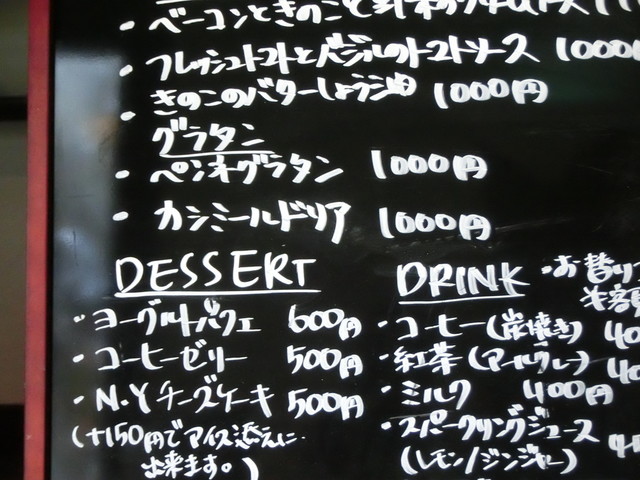 ・ベーコンときのこと
・フレッシュトマトとバジルのトマトソース 1000円
・きのこのバターしょうゆ 1000円
グラタン
・ペンネグラタン 1000円
・カシミールドリア 1000円
DESSERT
・ヨーグルトパフェ 600円
・コーヒーゼリー 500円
・N.Yチーズケーキ 500円
(+150円でアイス添えに
出来ます。)
DRINK ・お替り
・コーヒー(炭焼き) 40
・紅茶(アールグレー) 40
・ミルク 400円
・スパークリングジュース
(レモン/ジンジャー) 4